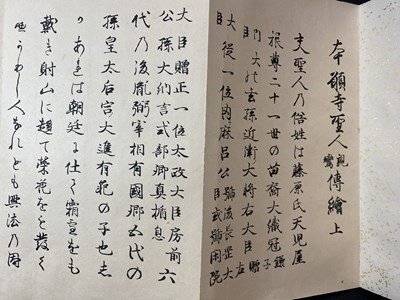 本願寺聖人親鸞傳繪上
夫聖人乃俗姓は藤原氏天児屋
根尊二十一世の苗裔大織冠鎌子
内大臣の玄孫近衛大将右大臣贈左
大臣従一位内麻呂公號後長岡大臣或號閑院
大臣贈正一位太政大臣房前
公孫大納言式部卿真楯息六
代乃後胤弼宰相有國卿五代の
孫皇太后宮大進有範の子也志
かあれは朝廷に仕て霜雪をも
戴き射山に趨て榮花をも發く
へかりし人なれとも興法乃因